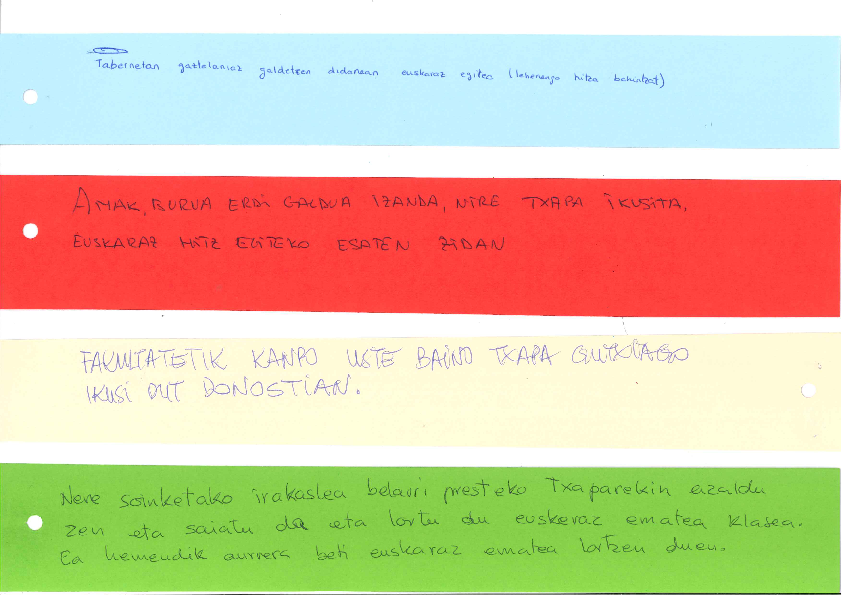 Tabernetan gaztelaniaz galdetzen didanean euskaraz egitea (lehenengo hitza behintzat)
AMAK, BURUA ERDI GALDUA IZANDA, NIRE TXAPA IKUSITA,
EUSKARAZ HITZ EGITEKO ESATEN ZIDAN
FAKULTATETIK KANPO USTE BAINO TXAPA GUTXIAGO
IKUSI DUT DONOSTIAN.
Nere soinketako irakaslea belarri presteko Txaparekin azaldu
zen eta saiatu da eta lortu du euskeraz ematea klasea.
Ea hemendik aurrera beti euskaraz ematea lortzen duen.